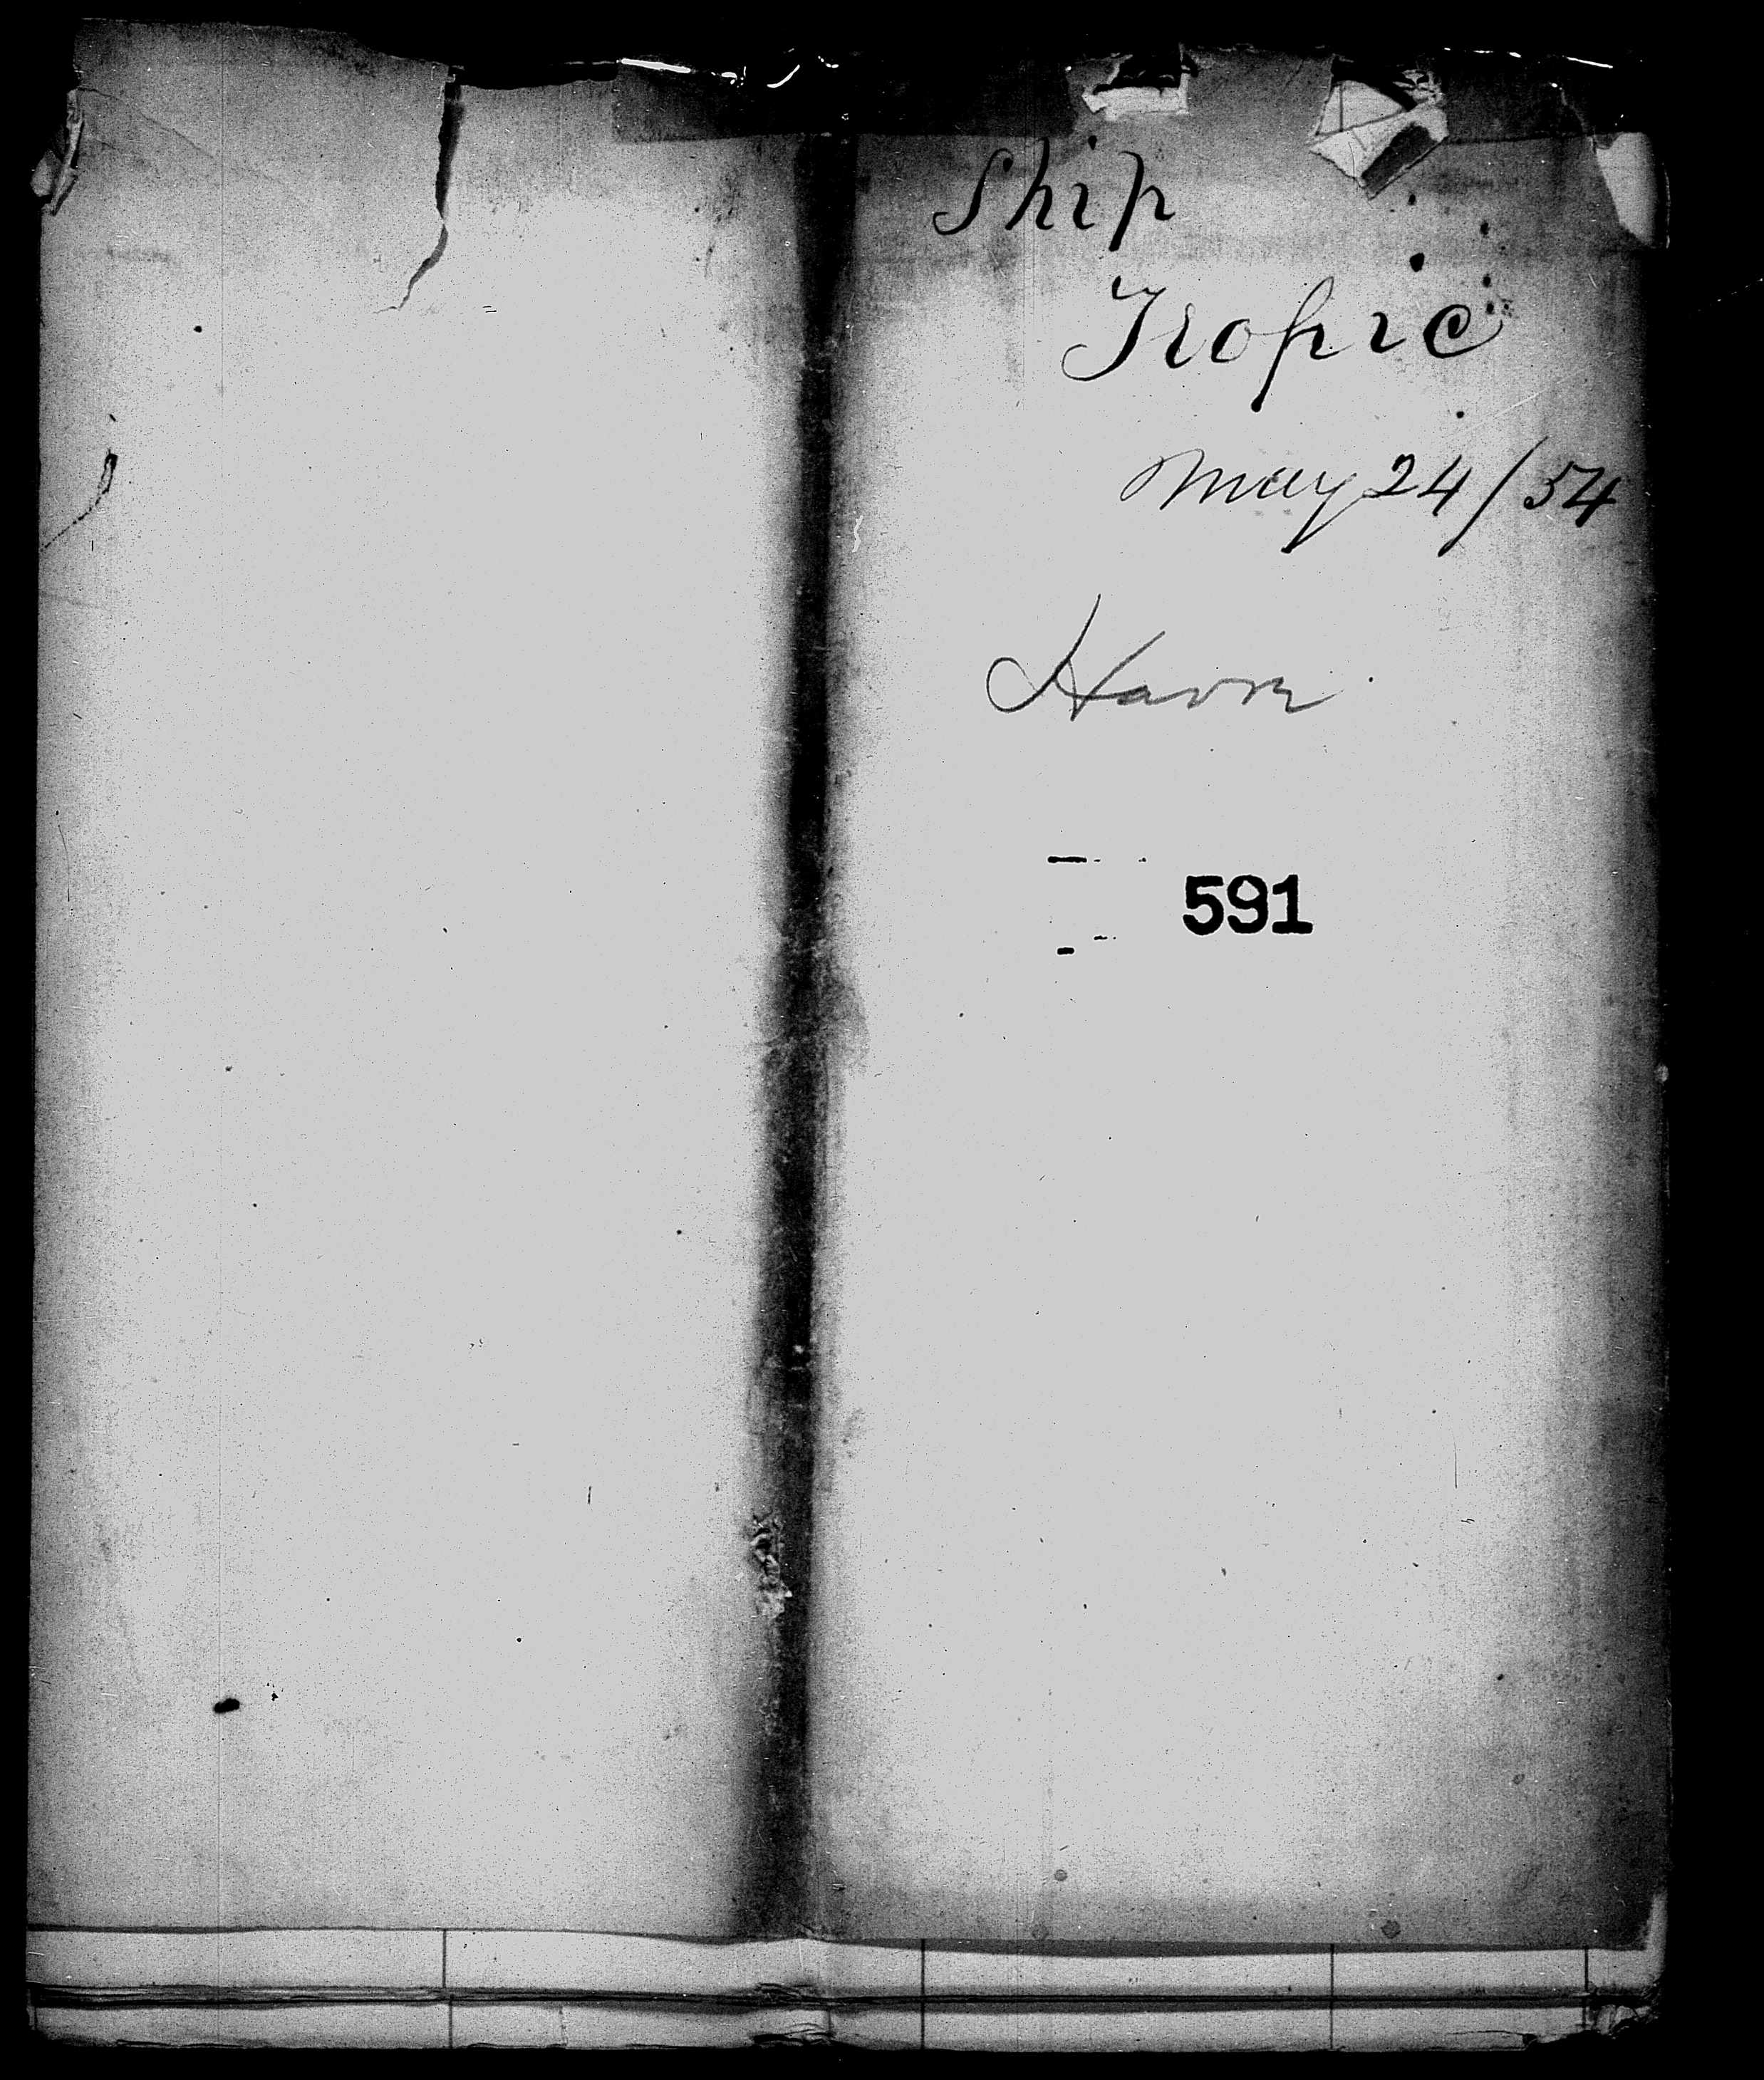 Ship
Tropic
May 24/54
Havre
591